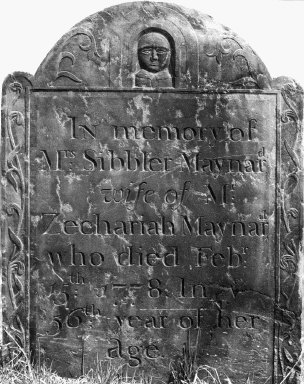 In memory of
Mrs. Sibbler Maynard
wife of Mr.
Zechariah Maynard
who died Feb.
15th 1778. In ye
56th year of her
age.